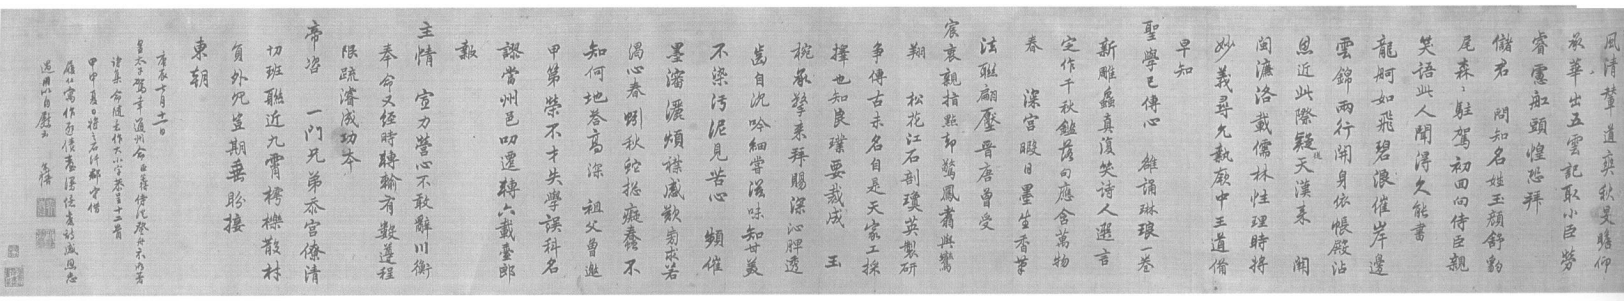 風清輦道爽秋旻瞻仰
承華出五雲記取小臣勞
睿慮舡頭惶恐拜
儲君　問知名姓玉顏舒豹
尾森〻駐駕初回向侍臣親
笑語此人聞得久能書
龍舸如飛碧浪催岸邊
雲錦兩行開身依帳殿沾
恩近此際疑從天漢來　關
閩濂洛載儒林性理時將
妙義尋久執厥中王道備
早知
聖學已傳心　雒誦琳琅一卷
新雕蟲真復笑詩人選言
定作千秋鑑落句應含萬物
春　深宮暇日墨生香筆
法聯翩壓晉唐曾受
宸衷親指點却驚鳳翥與鸞
翔　松花江石剖瓊英製研
爭傳古未名自是天家工採
擇也知良璞要裁成　玉
椀承擎柔拜賜深沁脾透
齒自沉吟細嘗滋味知甘美
不染污泥見苦心　頻催
墨瀋灑煩襟感歎芻求若
渴心春蚓秋蛇總癡蠢不
知何地答高深　祖父曾邀
甲第榮不才失學誤科名
謬當州邑叨遷轉六載臺郎
報
主情　宣力營心不敢辭川衡
奉命又經時轉輸有數遵程
限疏濬成功本
帝咨　一門兄弟忝宮僚清
切班聯近九霄樗櫟散材
負外兄豈期垂盼接
東朝
庚辰七月十一日
皇太子駕幸通州命臣蔣
詩集命隨意作大小字恭呈十二首
甲申夏日